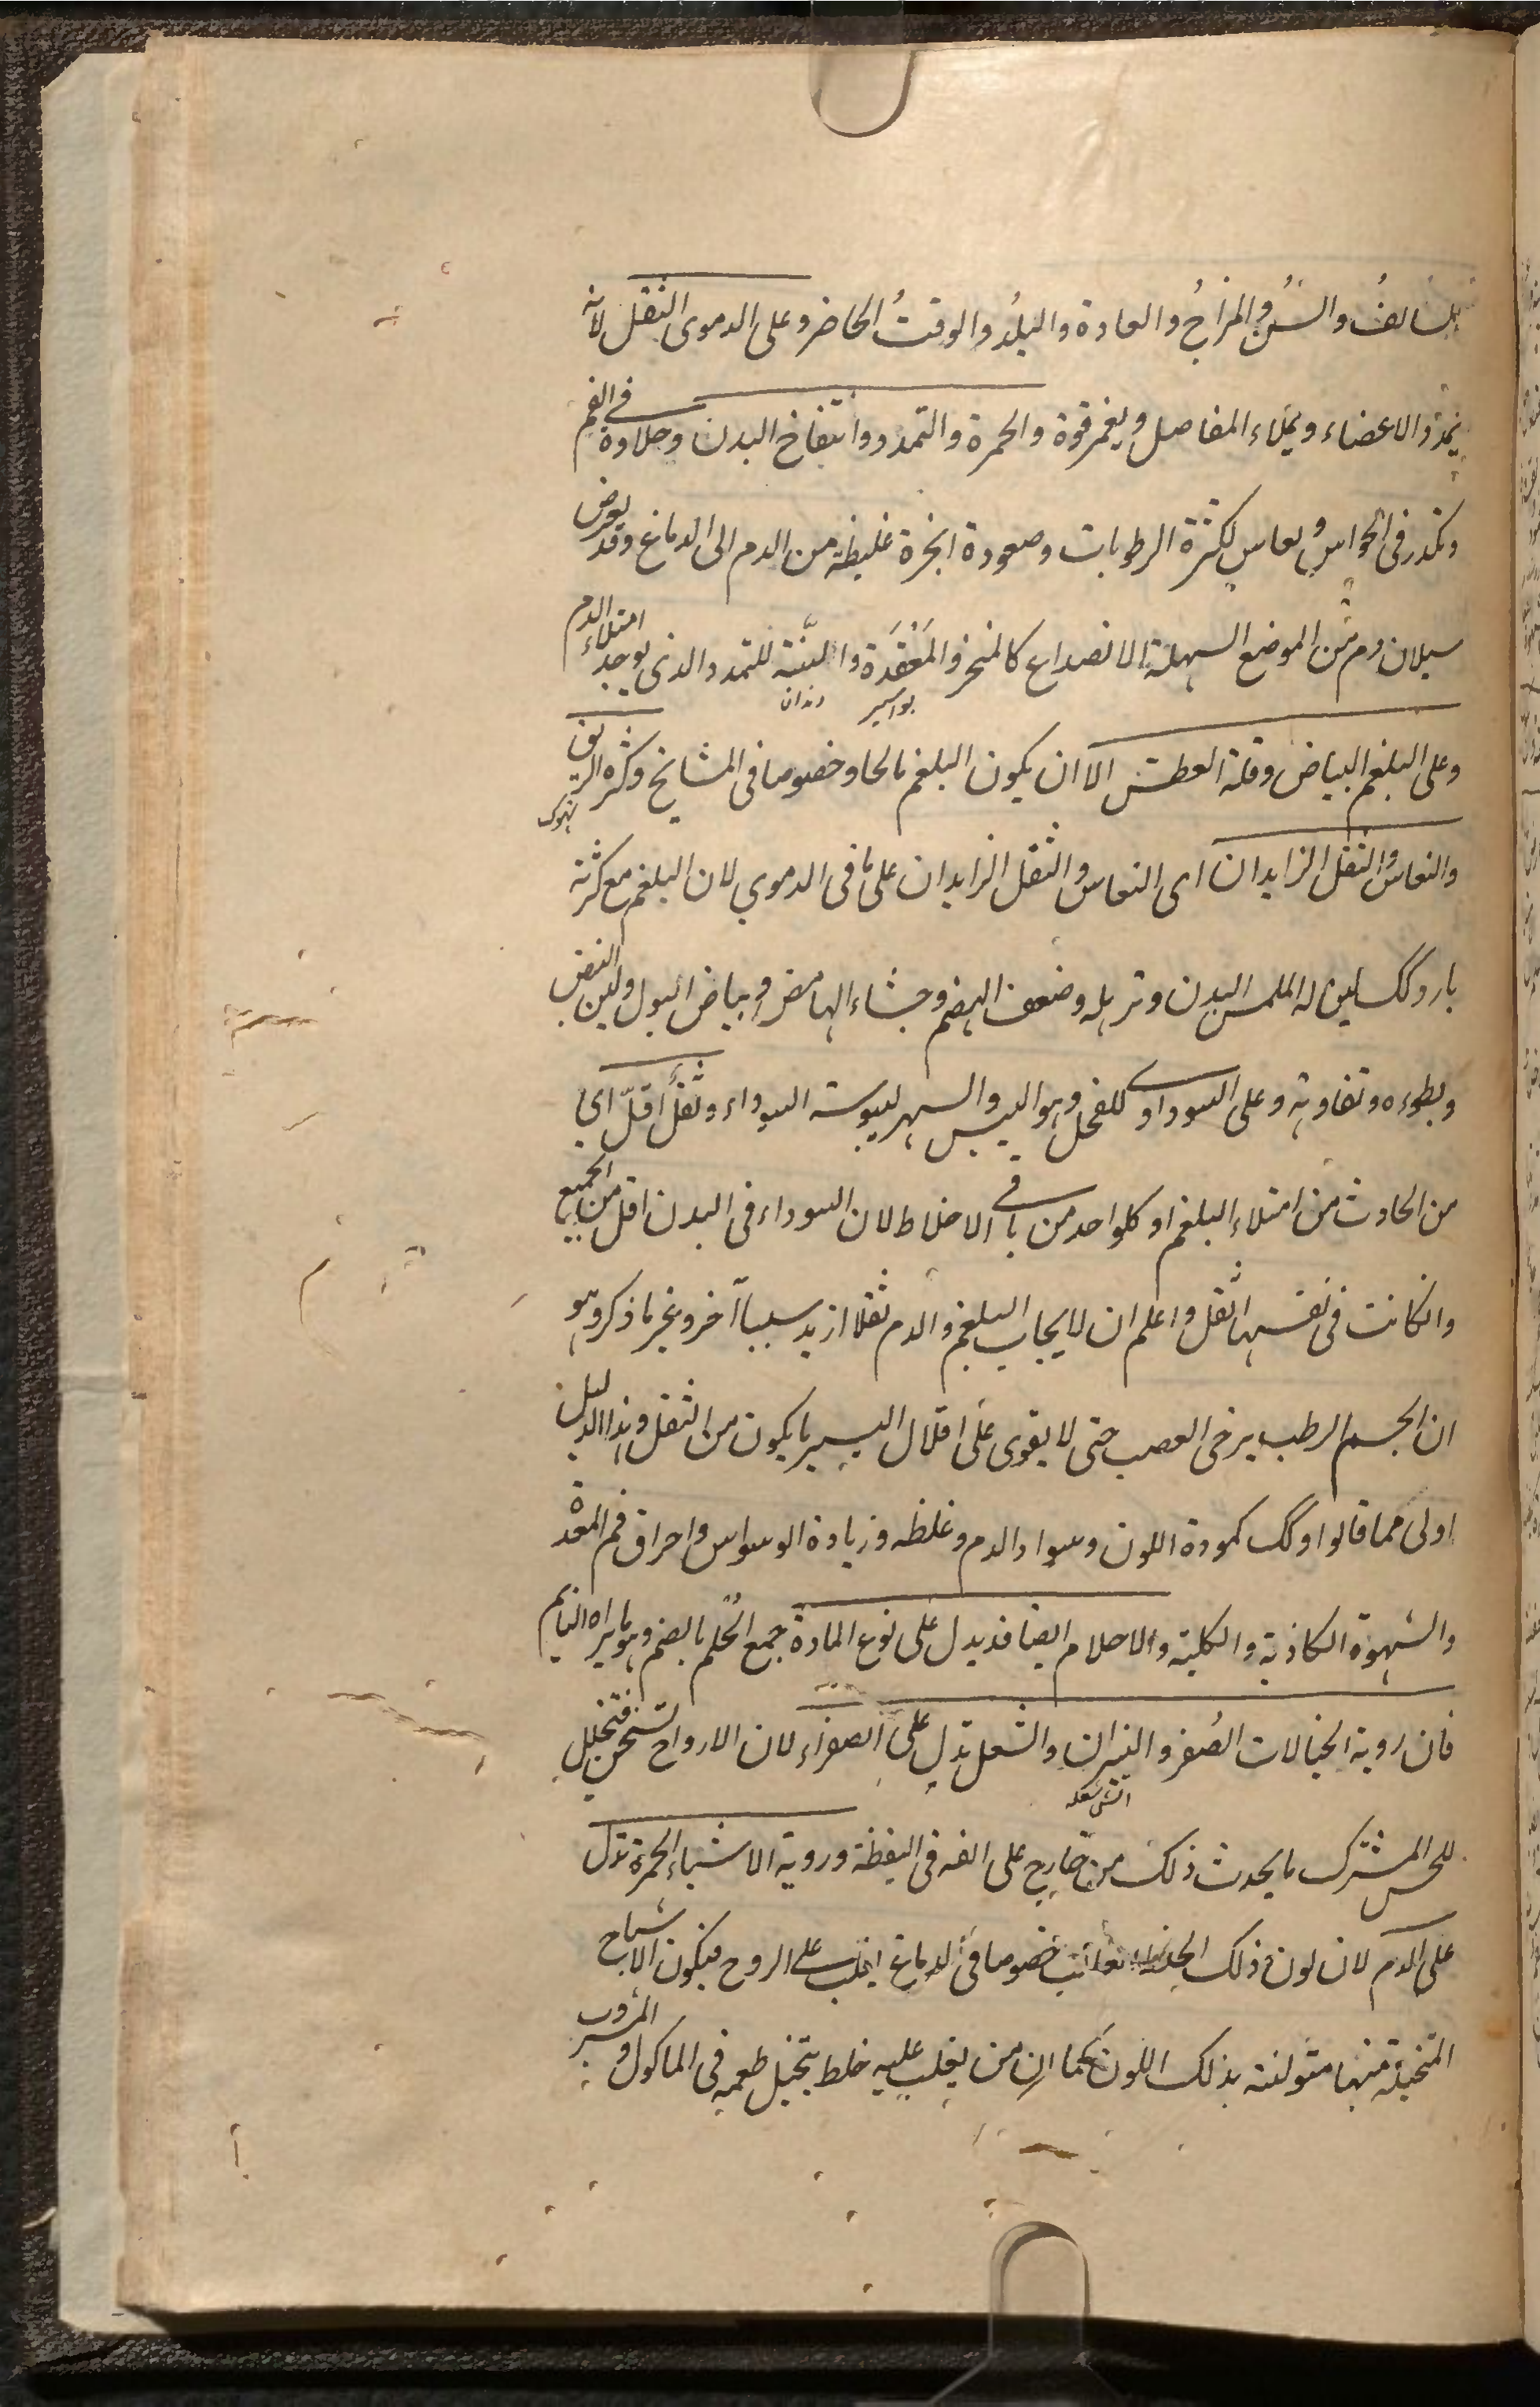 السالفُ والسنُّ والمزاجُ والعادة والبلدُ والوقتُ الحاضر وعلى الدموى الثقل لانه
يمدد الاعضاء ويملاء المفاصل ويغمر قوة والحمرة والتمدد وانتفاخ البدن وحلاوة فى الفم
وتكدر فى الحواس ونعاس لكثرة الرطوبات وصعودة ابخرة غليظة من الدم الى الدماغ وقد يعرض
سيلان دم من الموضع السهلة الانصداع كالمنخر والمَقعَدَة واللثّة للتمدد الذى يوجبه امتلاء الدم
بواسير دندان
وعلى البلغم البياض وقلة العطش الا ان يكون البلغم مالحا وخصوصا فى المشايخ وكثره الريق
تهوك
والنعاس والثقل الزايدان اى النعاس والثقل الزايدان على ما فى الدموي لان البلغم مع كثرته
بارد وكك لين له الملمس البدن وترهله وضعف الهضم وجشاء الهامض وبياض البول ولين النبض
وبطوءه وتفاوته وعلى السوداوى للقحل وهو اليبس والسهر ليبوسته السوداء وثقل اقلّ اى
من الحادث من امتلاء البلغم او كلواحد من باقى الاخلاط لان السوداء فى البدن اقل من الجميع
وانكانت فى نفسها اثقل واعلم ان لايجاب البلغم والدم ثقلا ازيد سببا آخر وغير ما ذكر وهو
ان الجسم الرطب يرخى العصب حتى لا يقوى على اقلال اليسير ما يكون من الثقل وهذا الدليل
اولى مما قالوا وكك كمودة اللون وسواد الدم وغلظه وزيادة الوسواس واحراق فم المعدة
والشهوة الكاذبة والكلبية والاحلام ايضا قد يدل على نوع المادة جمع الحُلم بالضم وهو ما يراه النايم
فان روية الخيالات الصُفر والنيران والشعل تدل على الصفراء لان الارواح تسخن فتخيلل
اتش شعله
للحس المشترك ما يحدث ذلك من خارج على الفه فى اليقظة وروية الاشياء الحمرة تدل
على الدم لان لون ذلك الخلط الغالب خصوصا فى الدماغ يغلب على الروح فيكون الاشباح
المتخيلة منها متولنة بذلك اللون كما ان من يغلب عليه خلط يتخيل طعمه فى الماكول والمشروب